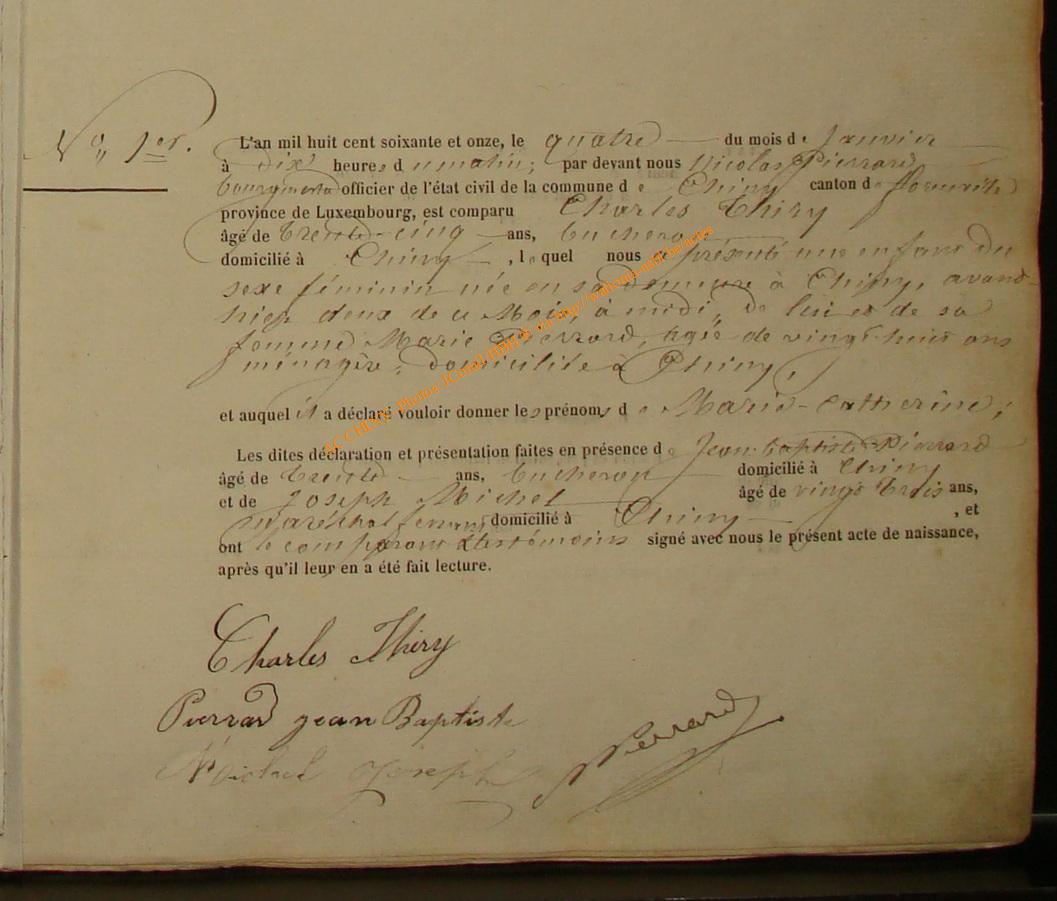 N° 1er.
L'an mil huit cent soixante et onze, le quatre du mois de Janvier
à dix heures du matin; par devant nous Nicolas Pierrard
bourgmestre officier de l'état civil de la commune de Chiny canton de Florenville
province de Luxembourg, est comparu Charles Thiry
âgé de trente-cinq ans, bucheron
domicilié à Chiny, lequel nous a présenté une enfant du
sexe féminin née en sa demeure à Chiny, avant-
hier deux de ce Mois, à midi, de lui et de sa
femme Marie Pierrard, agée de vingt-huit ans
ménagère, domiciliée à Chiny,
et auquel il a déclaré vouloir donner les prénoms de Marie-Catherine;
Les dites déclaration et présentation faites en présence de Jean-baptiste Pierrard
âgé de trente ans, bucheron domicilié à Chiny
et de Joseph Michel âgé de vingt trois ans,
maréchal ferrant domicilié à Chiny, et
ont le comparant et les témoins signé avec nous le présent acte de naissance,
après qu'il leur en a été fait lecture.
Charles Thiry
Pierrard jean Baptiste
Michel Joseph Pierrard